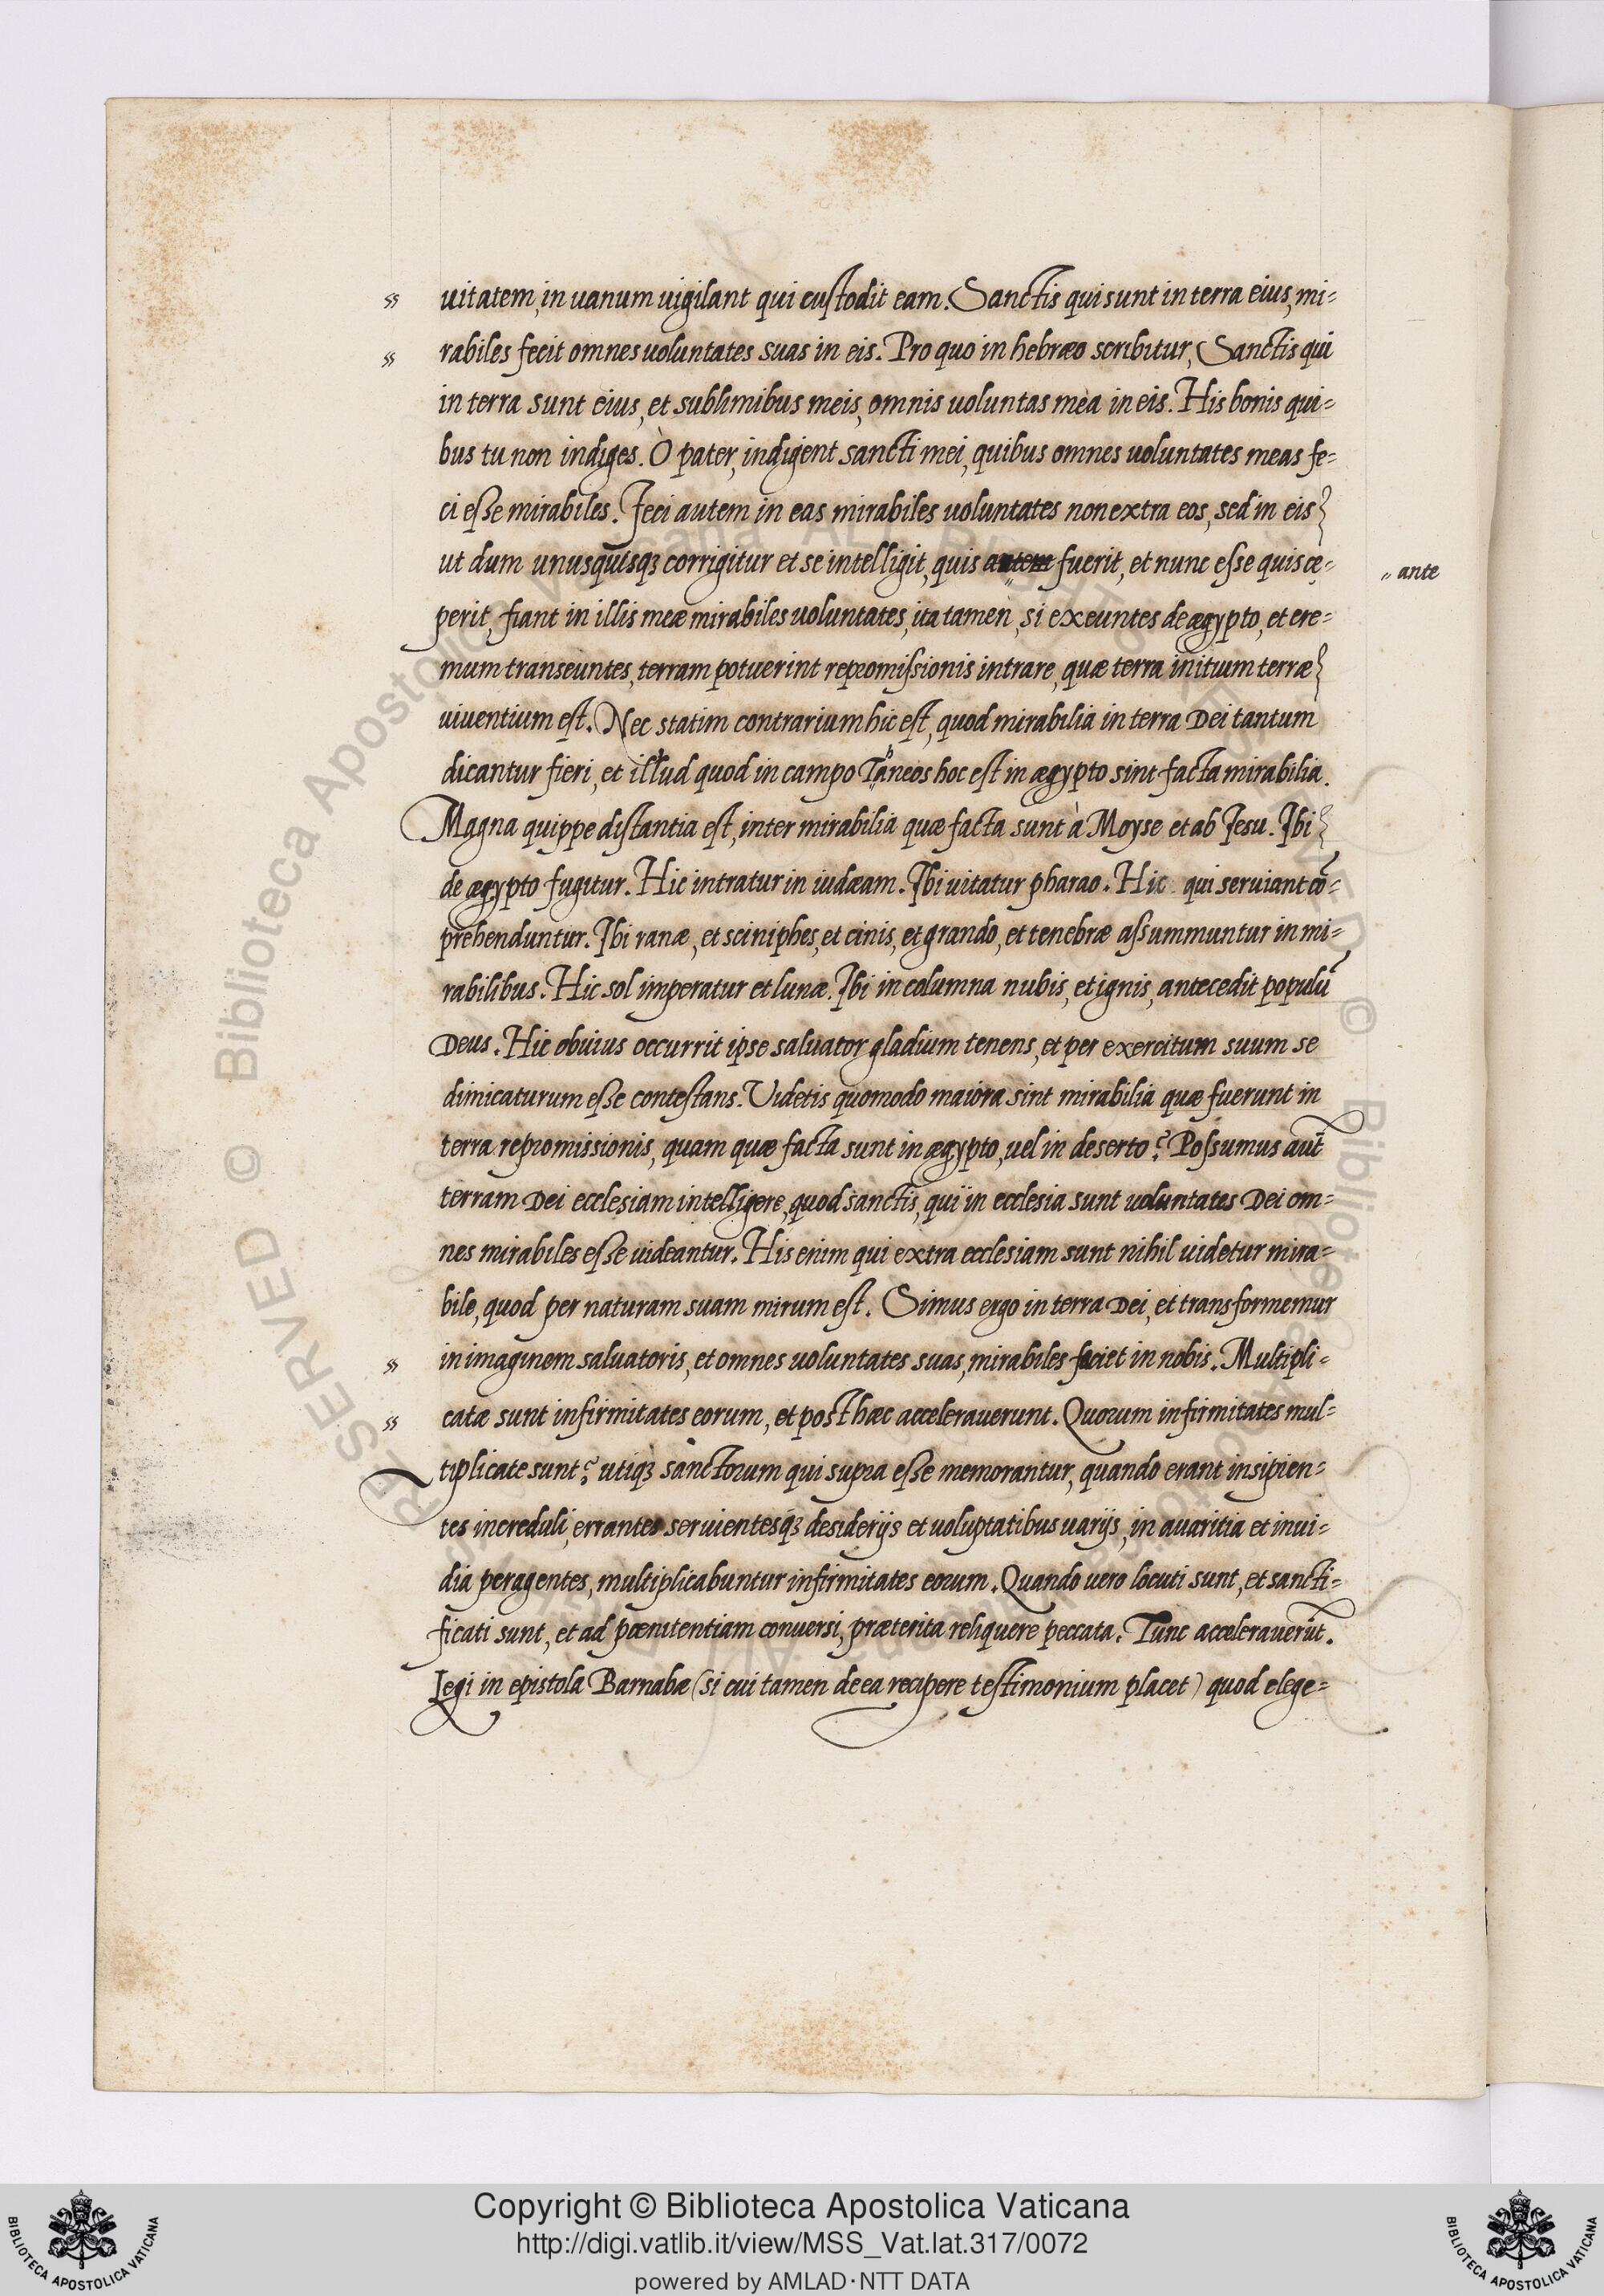 ss uitatem, in uanum uigilant qui custodit eam. Sanctis qui sunt in terra eius, mi-
ss rabiles fecit omnes uoluntates suas in eis. Pro quo in hebræo scribitur, Sanctis qui
in terra sunt eius, et sublimibus meis, omnis uoluntas mea in eis. His bonis qui-
bus tu non indiges. Ò pater, indigent sancti mei, quibus omnes uoluntates meas fe-
ci esse mirabiles. Feci autem in eas mirabiles uoluntates non extra eos, sed in eis
ut dum unusquisqꝫ corrigitur et se intelligit, quis autem fuerit, et nunc esse quis cæ-
〃 ante
perit, fiant in illis meæ mirabiles uoluntates, ita tamen, si exeuntes de ægypto, et ere-
mum transeuntes, terram potuerint repromissionis intrare, quæ terra initium terræ
uiuentium est. Nec statim contrarium hic est, quod mirabilia in terra Dei tantum
dicantur fieri, et illud quod in campo Taneos hoc est in ægypto sint facta mirabilia.
Magna quippe distantia est, inter mirabilia quæ facta sunt à Moyse et ab Iesu. Ibi
de ægypto fugitur. Hic intratur in iudæam. Ibi uitatur pharao. Hic qui seruiant cõ-
prehenduntur. Ibi ranæ, et sciniphes, et cinis, et grando, et tenebræ assummuntur in mi-
rabilibus. Hic sol imperatur et lunæ. Ibi in columna nubis, et ignis, antecedit populũ
Deus. Hic obuius occurrit ipse saluator gladium tenens, et per exercitum suum se
dimicaturum esse contestans. Videtis quomodo maiora sint mirabilia quæ fuerunt in
terra repromissionis, quam quæ facta sunt in ægypto, uel in deserto? Possumus aut̃
terram Dei ecclesiam intelligere, quod sanctis, qui in ecclesia sunt uoluntates Dei om-
nes mirabiles esse uideantur. His enim qui extra ecclesiam sunt nihil uidetur mira-
bile, quod per naturam suam mirum est. Simus ergo in terra Dei, et transformemur
ss in imaginem saluatoris, et omnes uoluntates suas, mirabiles faciet in nobis. Multipli-
ss catæ sunt infirmitates eorum, et post hæc accelerauerunt. Quorum infirmitates mul-
tiplicate sunt? utiqꝫ sanctorum qui supra esse memorantur, quando erant insipien-
tes increduli, errantes seruientesqꝫ desiderijs et uoluptatibus uarijs, in auaritia et inui-
dia peragentes, multiplicabuntur infirmitates eorum. Quando uero locuti sunt, et sancti-
ficati sunt, et ad pœnitentiam conuersi, præterita reliquere peccata. Tunc accelerauerũt.
Legi in epistola Barnabæ (si cui tamen de ea recipere testimonium placet) quod elege-
Copyright © Biblioteca Apostolica Vaticana
http://digi.vatlib.it/view/MSS_Vat.lat.317/0072
powered by AMLAD·NTT DATA
BIBLIOTECA APOSTOLICA VATICANA
BIBLIOTECA APOSTOLICA VATICANA